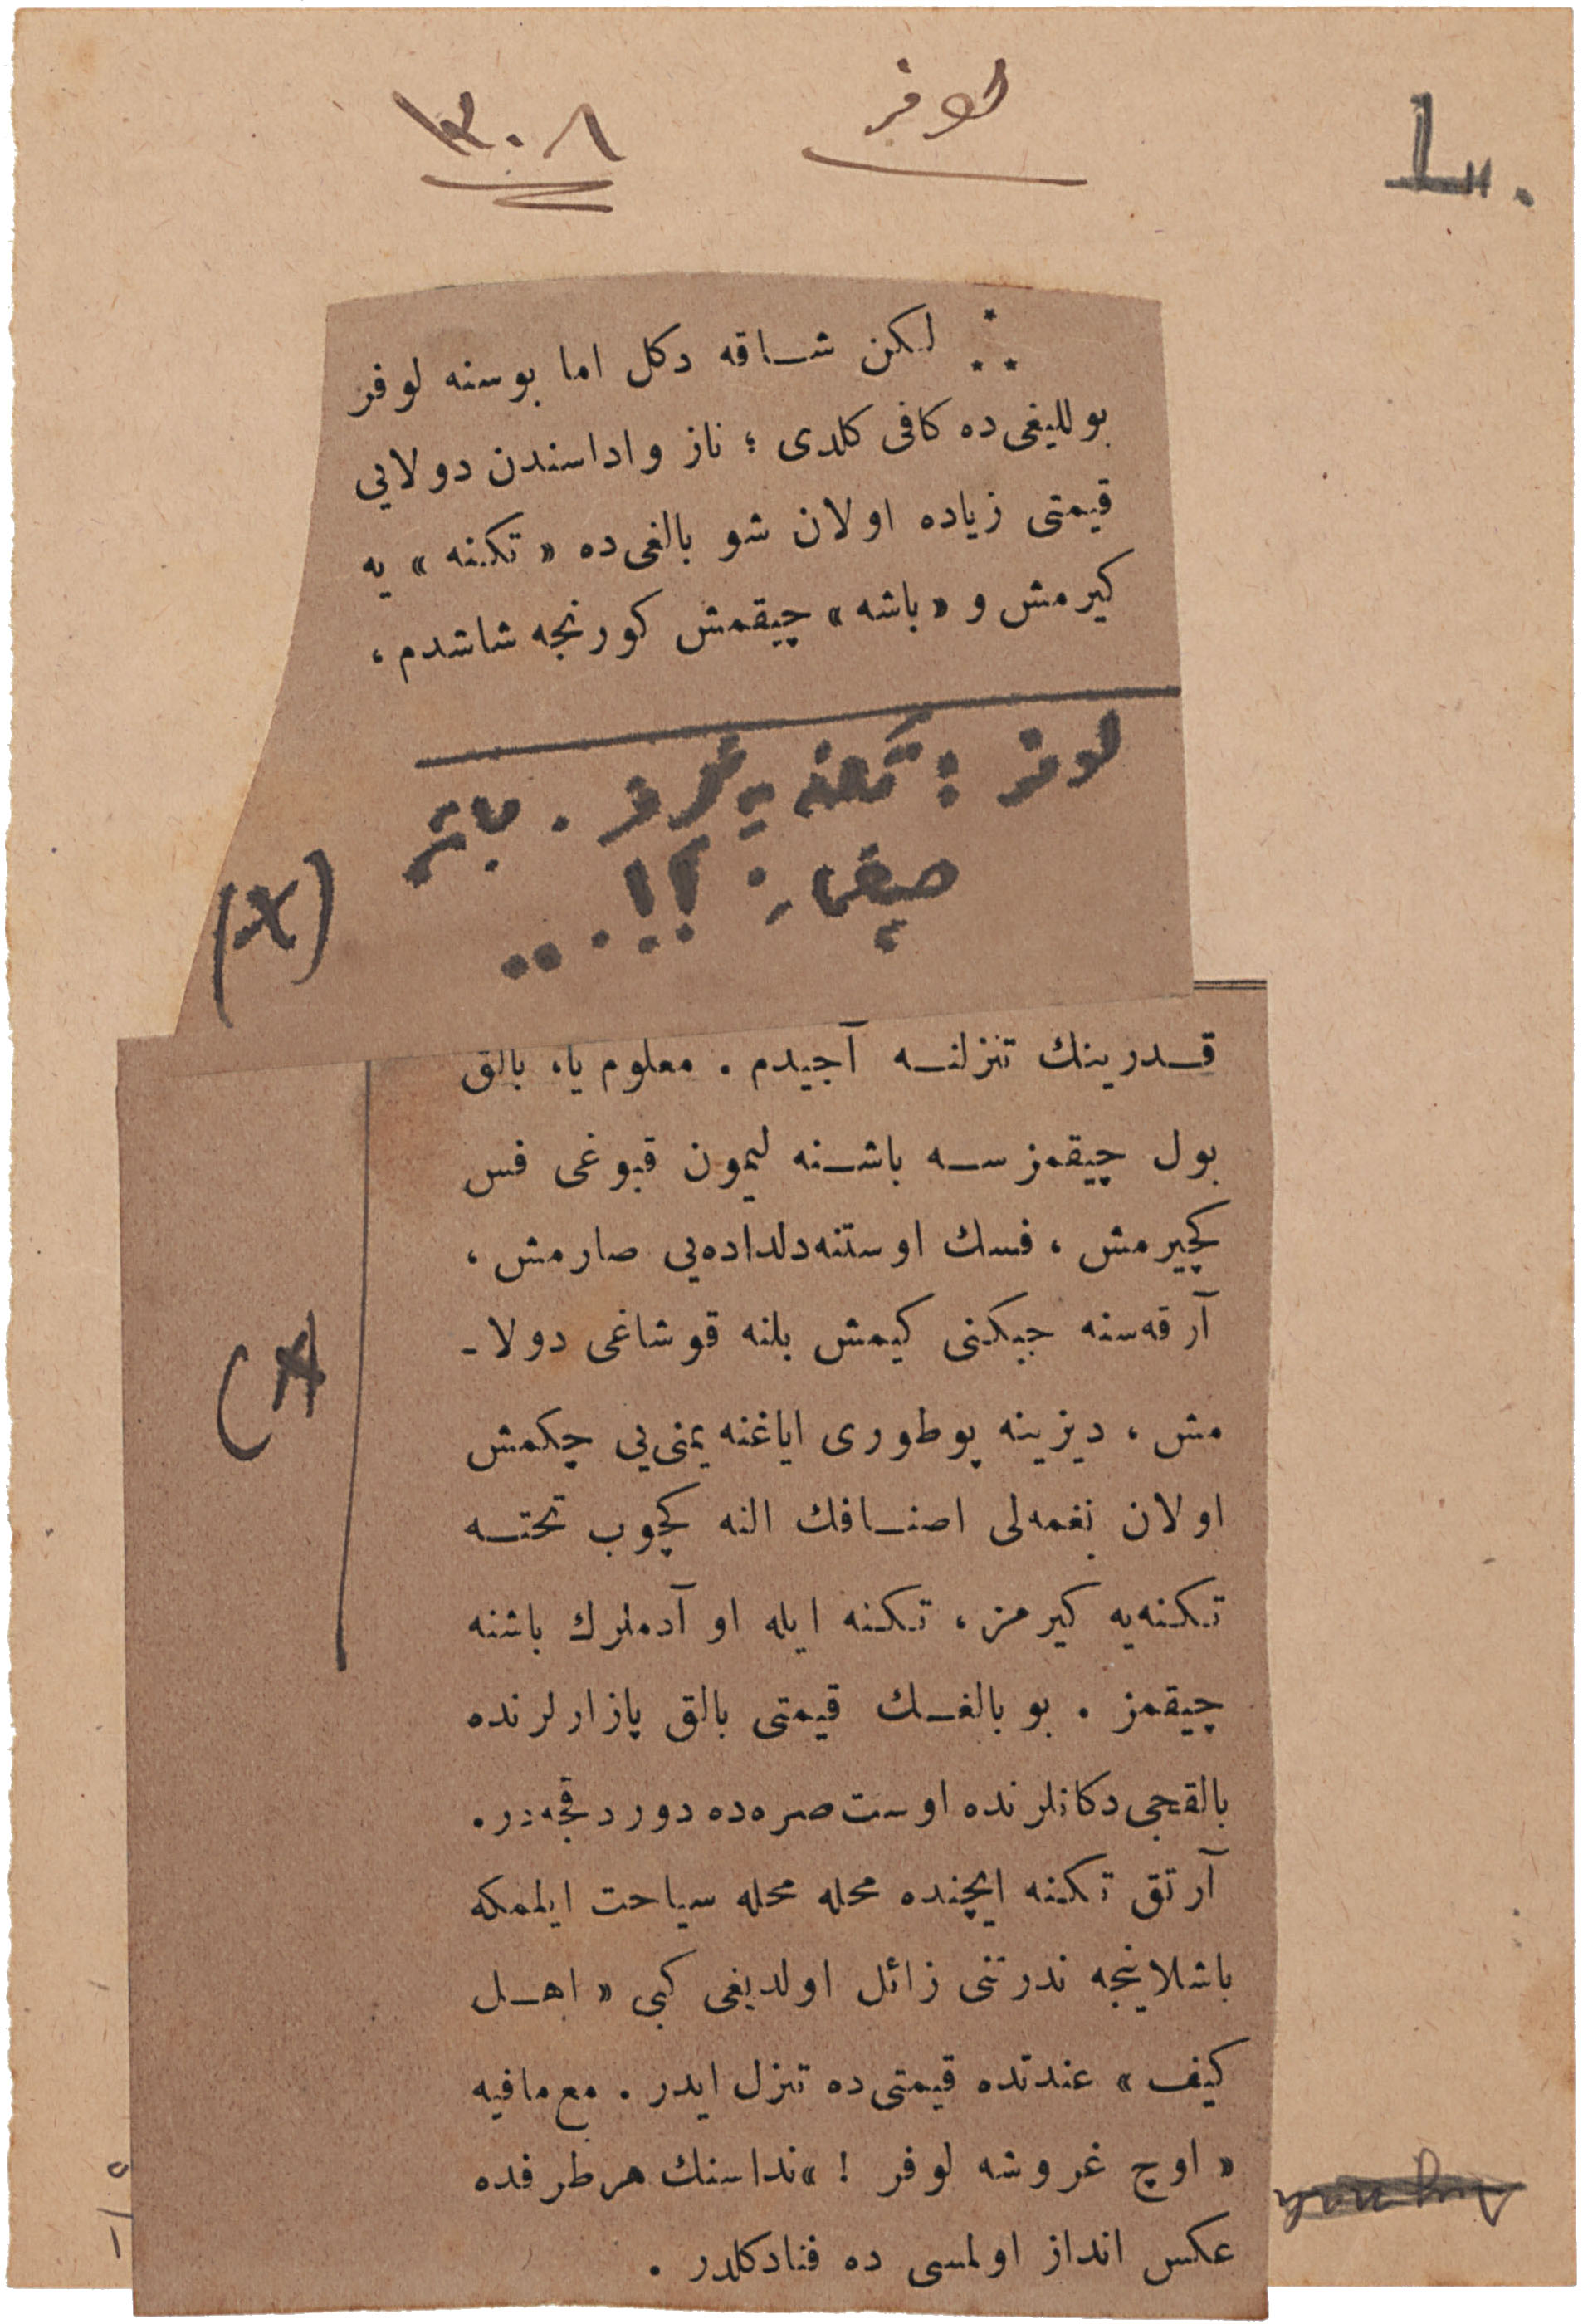 لوفر
١٣٠٨
L
لكن شاقه دكل اما بوسنه لوفر
بوللیغی ده كافی كلدی ؛ ناز واداسندن دولایی
قیمتی زیاده اولان شو بالغی ده « تكنه » یه
كیرمش و « باشه » چیقمش كورنجه شاشدم ،
لوفر : تكنه یه كیرمز . باشه
چیقماز ! ! ...
(x)
قدرینك تنزلنه آجیدم . معلوم یا، بالق
بول چیقمزسه باشنه لیمون قبوغی فس
كچیرمش ، فسك اوستنه دلداده یی صارمش ،
آرقه سنه جپكنی كیمش بلنه قوشاغی دولا ـ
مش ، دیزینه پوطوری ایاغنه یمنی یی چكمش
اولان نغمه لی اصنافك النه كچوب تخته
تكنه یه كیرمز ، تكنه ایله او آدملرك باشنه
چیقمز . بو بالغك قیمتی بالق پازارلرنده
بالقجی دكانلرنده اوست صره ده دوردقجه در .
آرتق تكنه ایچنده محله محله سیاحت ایلمكه
باشلاینجه ندرتنی زائل اولدیغی كبی « اهل
كیف » عندنده قیمتی ده تنزل ایدر . مع مافیه
« اوچ غروشه لوفر ! » نداسنك هر طرفده
عكس انداز اولمسی ده فنا دكلدر .